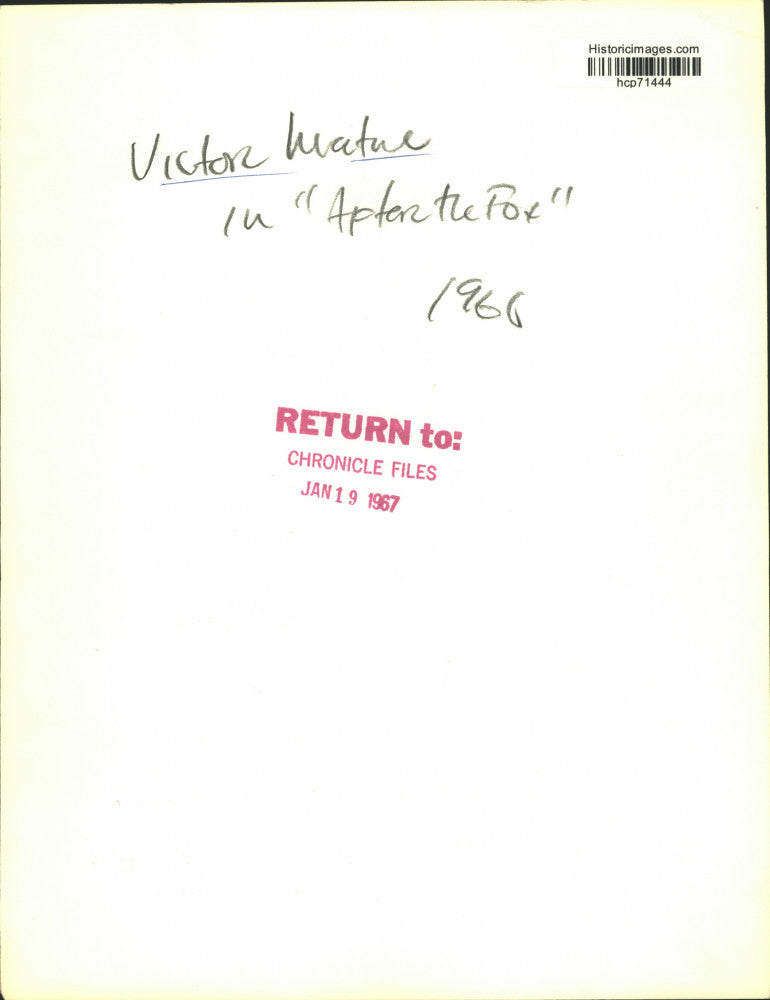 Historicimages.com
hcp71444
Victor Mature
in "After the Fox"
1966
RETURN to:
CHRONICLE FILES
JAN 19 1967